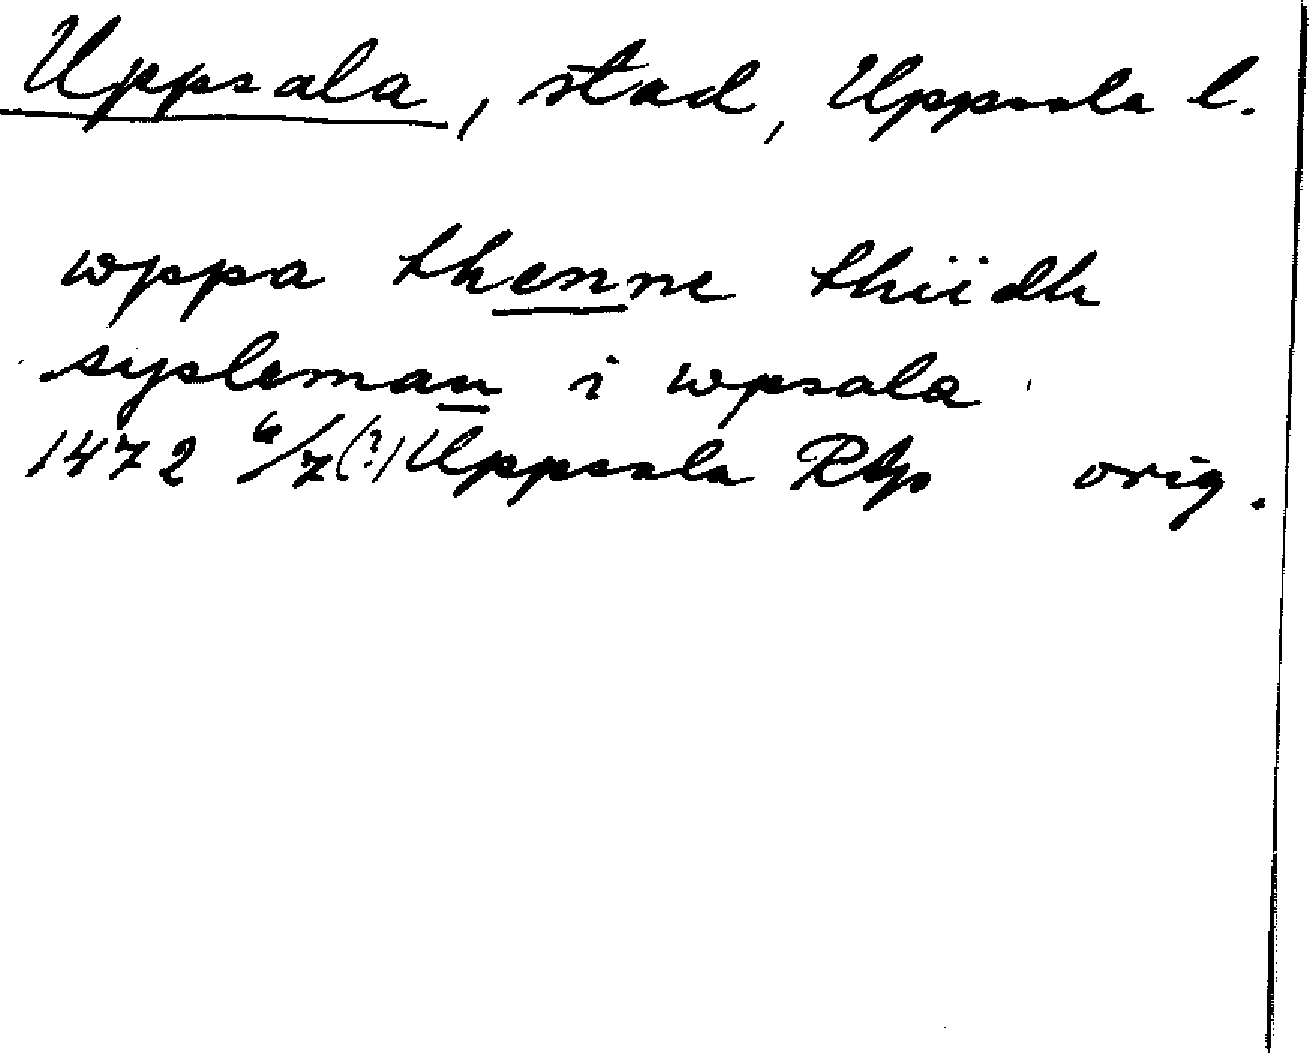 Uppsala, stad, Uppsala l.
wppa thenne thiidh
sysleman i wpsala
1472 6/7(?) Uppsala RAp orig.